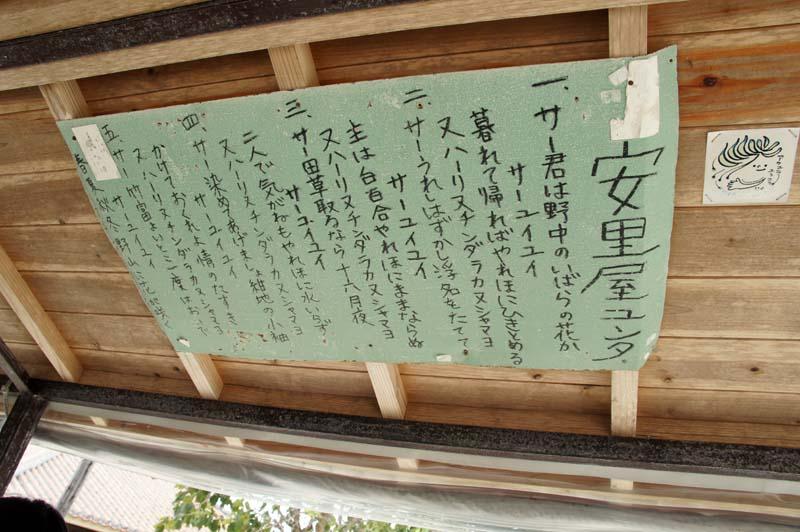 安里屋ユンタ
一、サー君は野中のいばらの花か
サーユイユイ
暮れて帰ればやれほにひきとめる
又ハーリヌチンダラカヌシャマヨ
二、サーうれしはずかし浮名をたてて
サーユイユイ
主は白百合やれほにままならぬ
又ハーリヌチンダラカヌシャマヨ
三、サー田草取るなら十六月夜
サーユイユイ
二人で気がねもやれほに水いらず
又ハーリヌチンダラカヌシャマヨ
四、サー染めてあげましょ紺地の小袖
サーユイユイ
かけておくれよ情のたすき
又ハーリヌチンダラカヌシャマヨ
五、サー竹富よいとこ一度はおいで
サーユイユイ
春夏秋冬野山